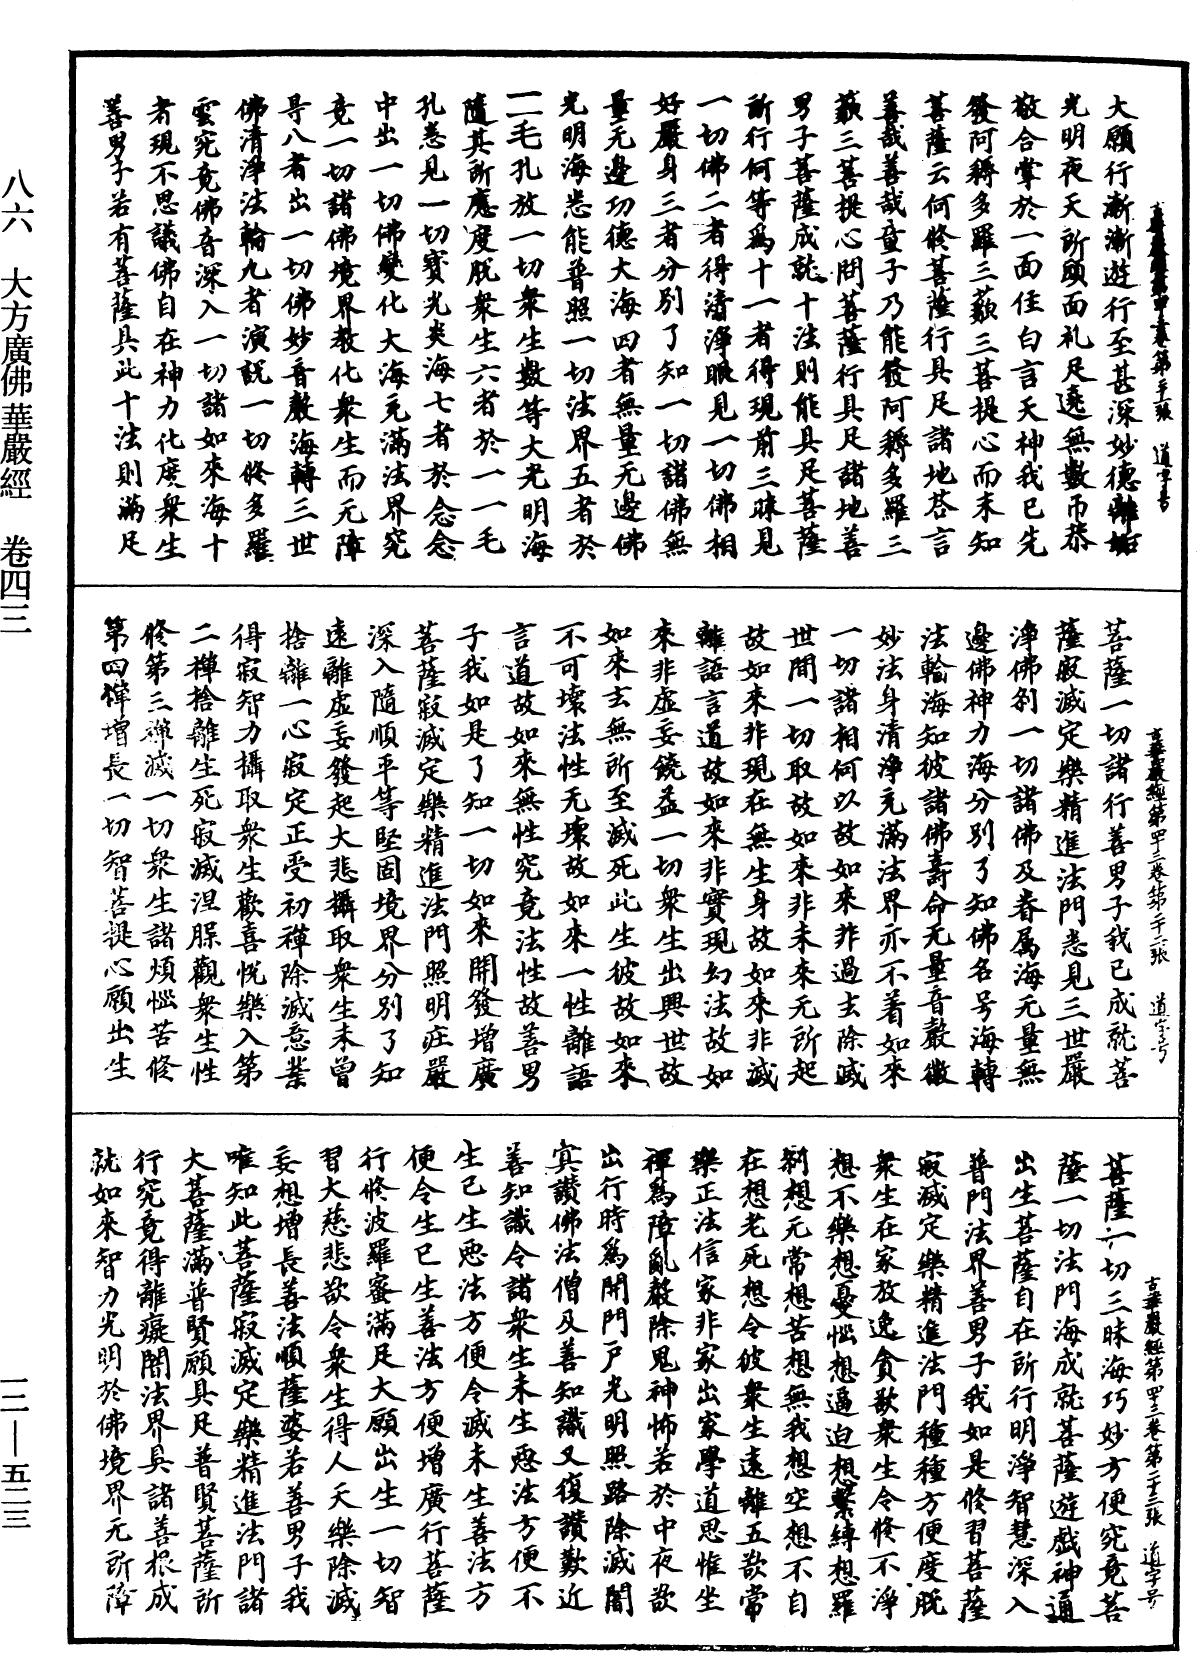 八六　大方廣佛華嚴經　卷四三
一二—五二三
大願行漸漸遊行至甚深妙德離垢
光明夜天所頭面礼足遶無數帀恭
敬合掌於一面住白言天神我已先
發阿耨多羅三藐三菩提心而未知
菩薩云何修菩薩行具足諸地荅言
善哉善哉童子乃能發阿耨多羅三
藐三菩提心問菩薩行具足諸地善
男子菩薩成就十法則能具足菩薩
所行何等爲十一者得現前三昧見
一切佛二者得清淨眼見一切佛相
好嚴身三者分別了知一切諸佛無
量无邊功德大海四者無量无邊佛
光明海悉能普照一切法界五者於
一一毛孔放一切衆生數等大光明海
隨其所應度脱衆生六者於一一毛
孔悉見一切寶光炎海七者於念念
中出一切佛變化大海充滿法界究
竟一切諸佛境界教化衆生而无障
㝵八者出一切佛妙音聲海轉三世
佛清淨法輪九者演説一切修多羅
雲究竟佛音深入一切諸如來海十
者現不思議佛自在神力化度衆生
善男子若有菩薩具此十法則滿足
古華嚴經第四十三卷第二十二張　道字号
菩薩一切諸行善男子我已成就菩
薩寂滅定樂精進法門悉見三世嚴
淨佛刹一切諸佛及眷属海无量無
邊佛神力海分別了知佛名号海轉
法輪海知彼諸佛壽命无量音聲徹
妙法身清淨充滿法界亦不着如來
一切諸相何以故如來非過去除滅
世間一切取故如來非未來无所起
故如來非現在無生身故如來非滅
離語言道故如來非實現幻法故如
來非虛妄饒益一切衆生出興世故
如來去無所至滅死此生彼故如來
不可壞法性无壞故如來一性離語
言道故如來無性究竟法性故善男
子我如是了知一切如來開發增廣
菩薩寂滅定樂精進法門照明莊嚴
深入隨順平等堅固境界分別了知
遠離虛妄發起大悲攝取衆生未曾
捨離一心寂定正受初禪除滅意業
得寂智力攝取衆生歡喜悅樂入第
二禪捨離生死寂滅涅槃觀衆生性
修第三禪滅一切衆生諸煩惱苦修
第四禪增長一切智菩提心願出生
古華嚴經第四十三卷第二十三張　道字号
菩薩一切三昧海巧妙方便究竟菩
薩一切法門海成就菩薩遊戲神通
出生菩薩自在所行明淨智慧深入
普門法界善男子我如是修習菩薩
寂滅定樂精進法門種種方便度脱
衆生在家放逸貪欲衆生令修不淨
想不樂想憂惱想逼迫想繫縛想羅
刹想无常想苦想無我想空想不自
在想老死想令彼衆生遠離五欲常
樂正法信家非家出家學道思惟坐
禪爲障亂聲除鬼神怖若於中夜欲
出行時爲開門戸光明照路除滅闇
冥讃佛法僧及善知識又復讃歎近
善知識令諸衆生未生惡法方便不
生已生惡法方便令滅未生善法方
便令生已生善法方便增廣行菩薩
行修波羅蜜滿足大願出生一切智
習大慈悲欲令衆生得人天樂除滅
妄想增長善法順薩婆若善男子我
唯知此菩薩寂滅定樂精進法門諸
大菩薩滿普賢願具足普賢菩薩所
行究竟得離癡闇法界具諸善根成
就如來智力光明於佛境界无所障